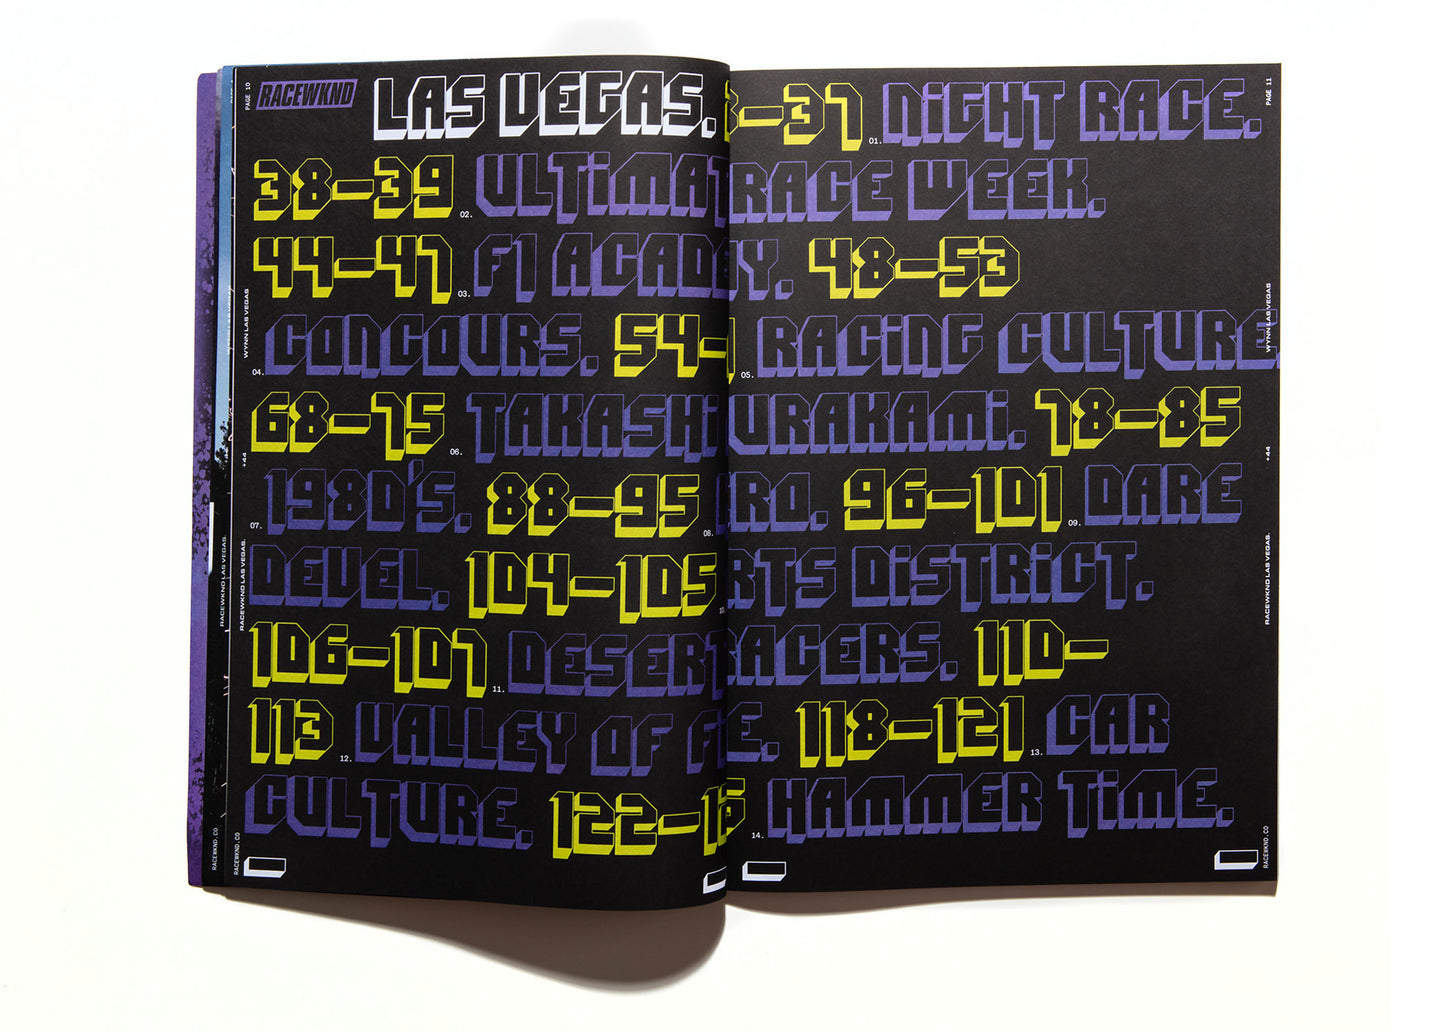 PAGE 10
RACEWKND
LAS VEGAS. -37 01. NIGHT RACE.
PAGE 11
38–39 02. ULTIMAT RACE WEEK.
44–47 03. F1 ACADE Y. 48–53
04. CONCOURS. 54– 05. RACING CULTURE.
68–75 06. TAKASHI URAKAMI. 78–85
07. 1980'S. 88–95 08. RD. 96–101 09. DARE
DEVEL. 104–105 10. RTS DISTRICT.
106–107 11. DESERT RACERS. 110–
113 12. VALLEY OF F E. 118–121 13. CAR
CULTURE. 122–1 5 14. HAMMER TIME.
WYNN LAS VEGAS
+44
RACEWKND LAS VEGAS.
RACEWKND.CO
WYNN LAS VEGAS
+44
RACEWKND LAS VEGAS.
RACEWKND.CO
WYNN LAS VEGAS
RACEWKND LAS VEGAS.
RACEWKND.CO